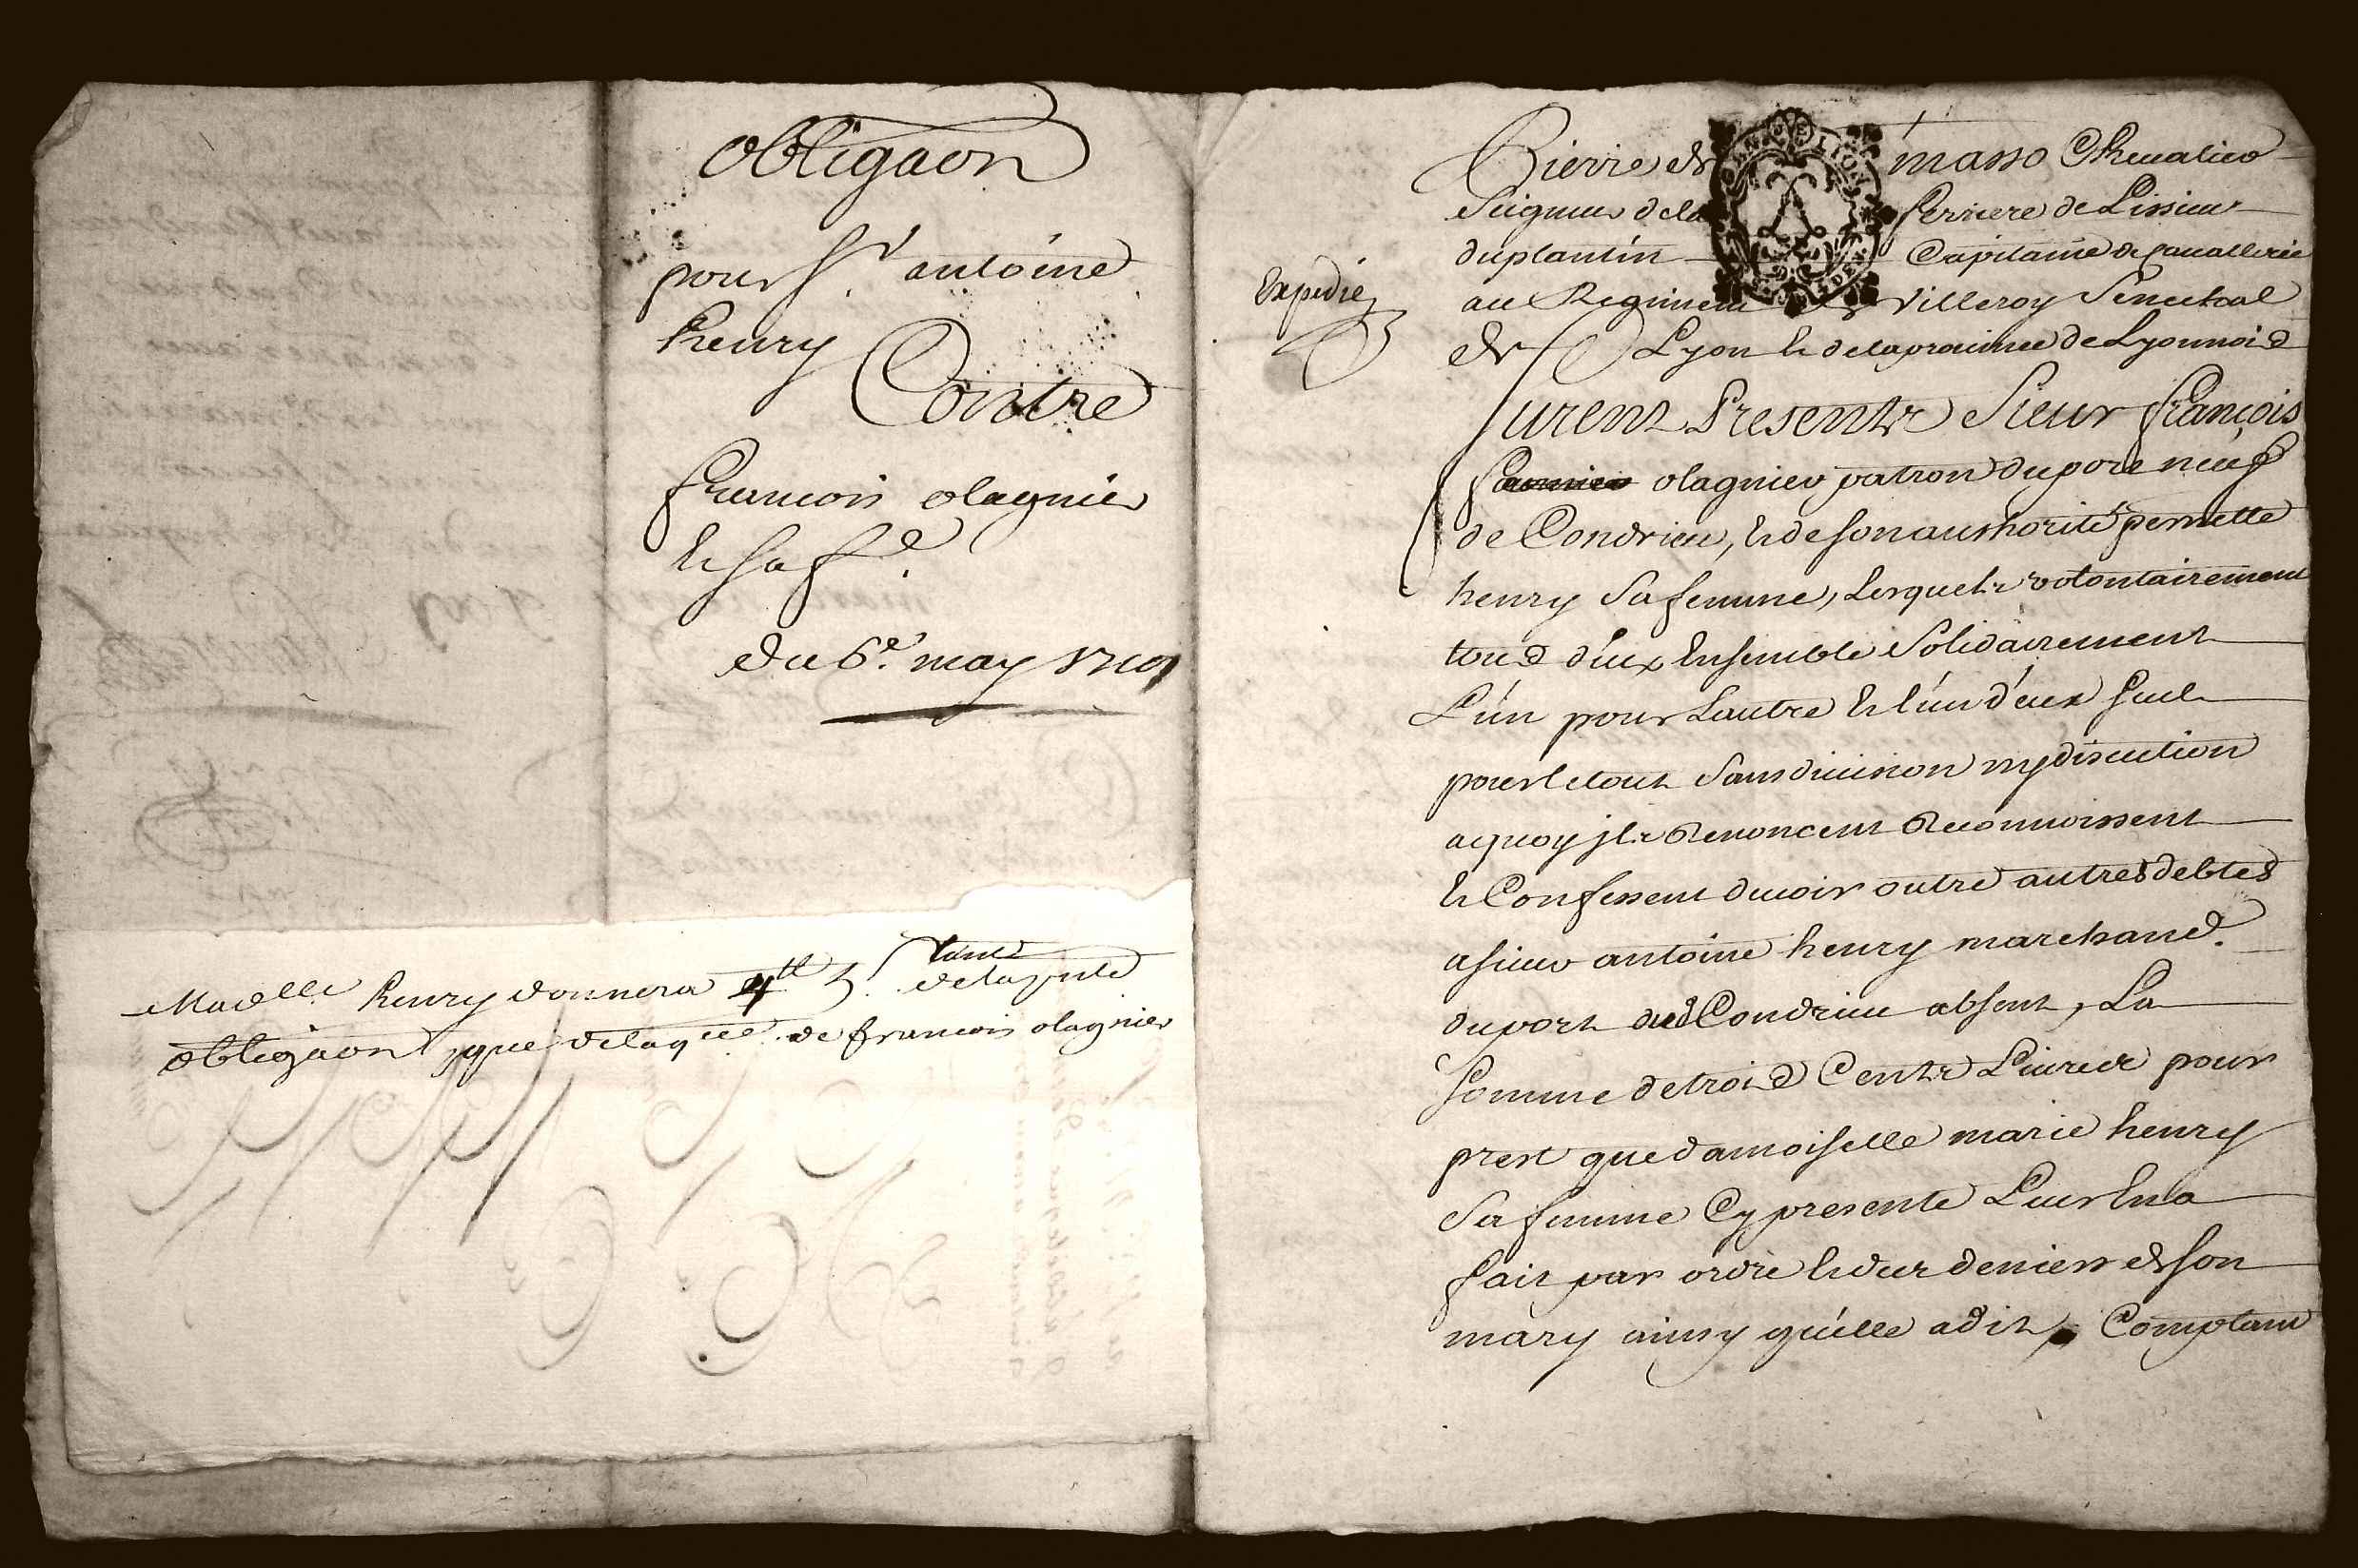 obligaon
pour Sr. antoine
henry
Contre
françois olagnier
& sa fe.
du 6e. may 1710
Madlle. henry donnera 4tt 5s. tant
de la pnte
obligaon, que de la qce. de francois olagnier
Expedié
Pierre de masso Cheualier
Seigneur de la ferriere de Lissieu
du plantin Capitaine de cauallerie
au Regiment de Villeroy Senechal
de Lyon & de la prouince de Lyonnois
furent Presents Sieur françois
olagnier patron du port neuf
de Condrieu, & de son authorité pernette
henry Sa femme, Lesquels volontairement
tous d'eux Ensemble Solidairement
L'un pour Lautre & l'un d'eux seul
pour le tout Sans diuision ny discution
a quoy jls Renoncent Reconnoissent
& Confessent deuoir outre autres debtes
a sieur antoine henry marchand
du port dud Condrieu absent, La
Somme de trois Cents Liures pour
prest que damoiselle marie henry
Sa femme Cy presente Leur En a
fait par ordre & des deniers de son
mary ainsy qu'elle a dit, Comptant